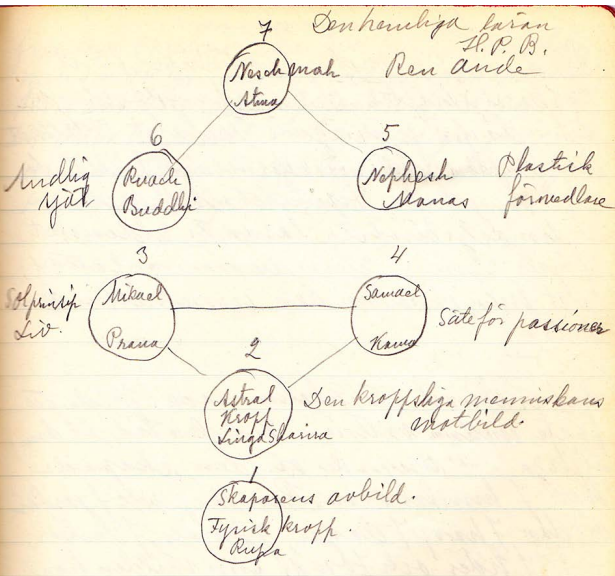 Den hemliga läran
H. P. B.
7
Neschmah
Atma
Ren ande
6
Andlig
själ
Ruach
Buddhi
5
Nephesh
Manas
Plastisk
förmedlare
3
Solprinsip
Liv.
Mikael
Prana
4
Samael
Kama
Säte för passioner
2
Astral
Kropp
Linga Sharira
Den kroppsliga menniskans
motbild.
1
Skaparens avbild.
Fysisk kropp.
Rupa